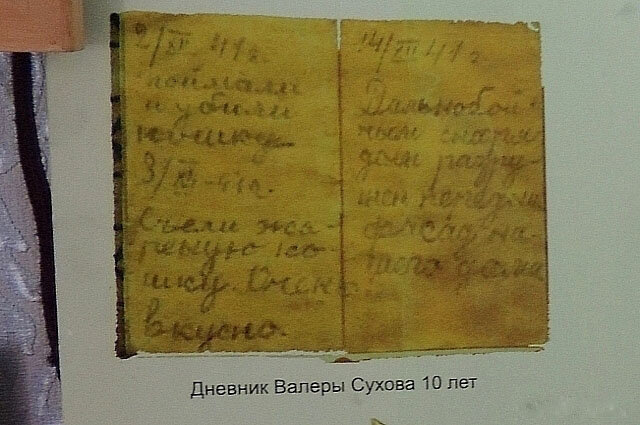 2/XII 41 г.
поймали
и убили
кошку
3/XII-41 г.
Съели жа-
реную ко-
шку. Очень
вкусно.
4/XII 41 г
Дальнобой
ным снаря
дом разру-
шен передний
фасад на-
шего дома
Дневник Валеры Сухова 10 лет